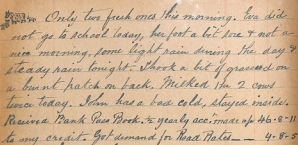 Only two fresh ones this morning. Eva did
not go to school today, her foot a bit sore & not a
nice morning, some light rain during the day &
steady rain tonight. Shook a bit of grasseed on
a burnt patch on back. Milked the 2 cows
twice today. John has a bad cold, stayed inside.
Received Bank Pass Book. ½ yearly acc. made up 46-8-11
to my credit. Got demand for Road Rates — 4-8-5